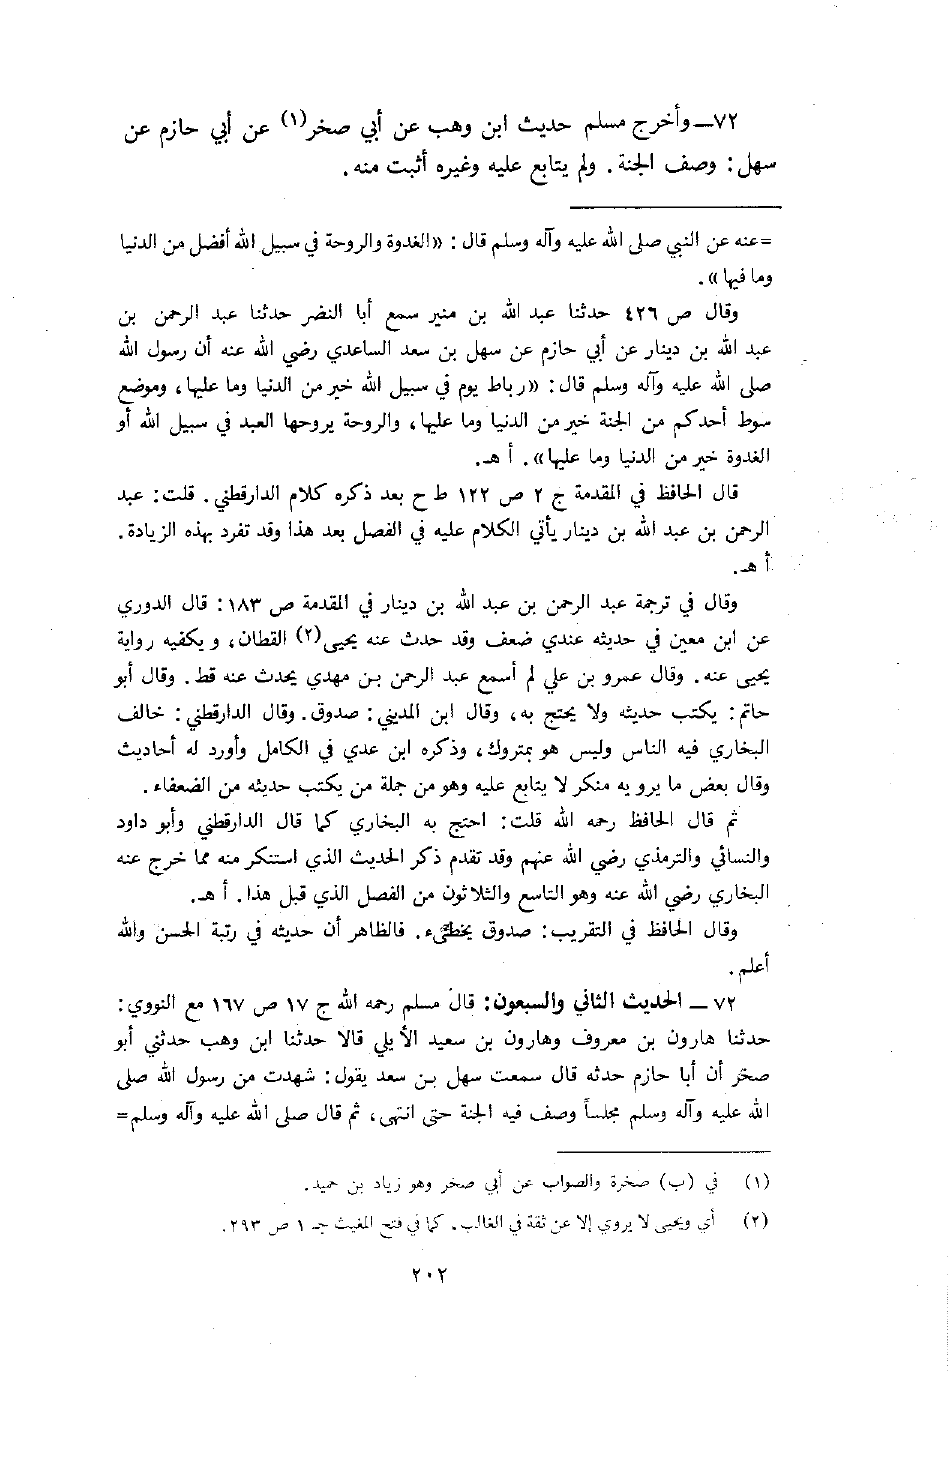 ٧٢ــ وأخرج مسلم حديث ابن وهب عن أبي صخر(١) عن أبي حازم عن
سهل: وصف الجنة. ولم يتابع عليه وغيره أثبت منه.
=عنه عن النبي صلى الله عليه وآله وسلم قال: «الغدوة والروحة في سبيل الله أفضل من الدنيا
وما فيها».
وقال ص ٤٢٦ حدثنا عبد الله بن منير سمع أبا النضر حدثنا عبد الرحمن بن
عبد الله بن دينار عن أبي حازم عن سهل بن سعد الساعدي رضي الله عنه أن رسول الله
صلى الله عليه وآله وسلم قال: «رباط يوم في سبيل الله خير من الدنيا وما عليها، وموضع
سوط أحدكم من الجنة خير من الدنيا وما عليها، والروحة يروحها العبد في سبيل الله أو
الغدوة خير من الدنيا وما عليها». أ هـ.
قال الحافظ في المقدمة ج ٢ ص ١٢٢ ط ح بعد ذكره كلام الدارقطني. قلت: عبد
الرحمن بن عبد الله بن دينار يأتي الكلام عليه في الفصل بعد هذا وقد تفرد بهذه الزيادة.
أ هـ.
وقال في ترجمة عبد الرحمن بن عبد الله بن دينار في المقدمة ص ١٨٣: قال الدوري
عن ابن معين في حديثه عندي ضعف وقد حدث عنه يحيى(٢) القطان، ويكفيه رواية
يحيى عنه. وقال عمرو بن علي لم أسمع عبد الرحمن بن مهدي يحدث عنه قط. وقال أبو
حاتم: يكتب حديثه ولا يحتج به، وقال ابن المديني: صدوق. وقال الدارقطني: خالف
البخاري فيه الناس وليس هو بمتروك، وذكره ابن عدي في الكامل وأورد له أحاديث
وقال بعض ما يرويه منكر لا يتابع عليه وهو من جملة من يكتب حديثه من الضعفاء.
ثم قال الحافظ رحمه الله قلت: احتج به البخاري كما قال الدارقطني وأبو داود
والنسائي والترمذي رضي الله عنهم وقد تقدم ذكر الحديث الذي استنكر منه مما خرج عنه
البخاري رضي الله عنه وهو التاسع والثلاثون من الفصل الذي قبل هذا. أ هـ.
وقال الحافظ في التقريب: صدوق يخطىء. فالظاهر أن حديثه في رتبة الحسن والله
أعلم.
٧٢ ــ الحديث الثاني والسبعون: قال مسلم رحمه الله ج ١٧ ص ١٦٧ مع النووي:
حدثنا هارون بن معروف وهارون بن سعيد الأيلي قالا حدثنا ابن وهب حدثني أبو
صخر أن أبا حازم حدثه قال سمعت سهل بن سعد يقول: شهدت من رسول الله صلى
الله عليه وآله وسلم مجلساً وصف فيه الجنة حتى انتهى، ثم قال صلى الله عليه وآله وسلم=
(١) في (ب) صخرة والصواب عن أبي صخر وهو زياد بن حميد.
(٢) أي ويحيى لا يروي إلا عن ثقة في الغالب. كما في فتح المغيث جـ ١ ص ٢٩٣.
٢٠٢